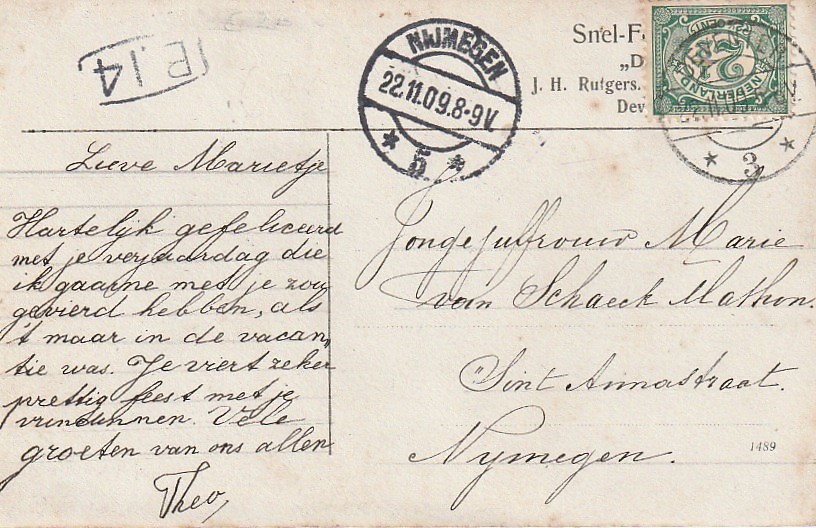 P.14
NIJMEGEN
22.11.09.8-9V.
5
Snel-F
„D
J. H. Rutgers.
Dev
2½
NEDERLAND
3
Lieve Marietje
Hartelijk gefeliceerd
met je verjaardag die
ik gaarne met je zou
gevierd hebben, als
't maar in de vacan„
tie was. Je viert zeker
prettig feest met je
vriendinnen. Vele
groeten van ons allen
Theo,
Jongejuffrouw Marie
van Schaeck Mathon.
Sint Annastraat.
Nymegen.
1489